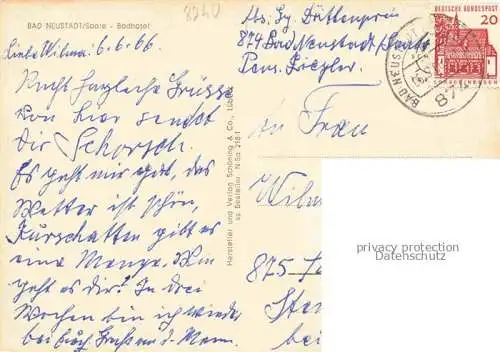 8740
BAD NEUSTADT/Saale - Badhotel
Liebe Wilma! 6.6.66
Recht herzliche Grüsse
von hier sendet
Dir Schorsch.
Es geht mir gut, das
Wetter ist schön,
Kurschatten gibt es
eine Menge. Wie
geht es dir? In drei
Wochen bin ich wieder
bei Euch. Gruß an d. Mann.
Hersteller und Verlag Schöning & Co., Lübeck
Bestellnr. N Sa 218
Abs. Gg.
874 Bad Neustadt/Saale
Pens. Ziegler.
DEUTSCHE BUNDESPOST
20
BAD NEUSTADT
874
An Frau
Wilm
875
privacy protection
Datenschutz
bei